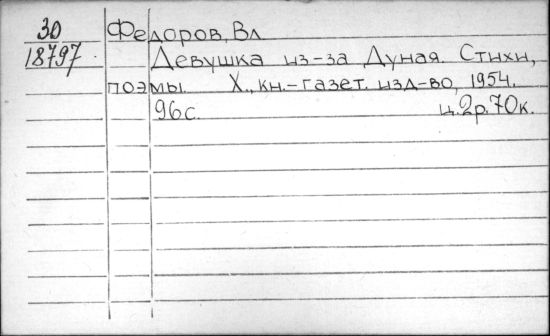 30
18797
Федоров, Вл
Девушка из-за Дуная. Стихи,
поэмы. Х., кн.-газет. изд-во, 1954.
96с. ц.2р.70к.